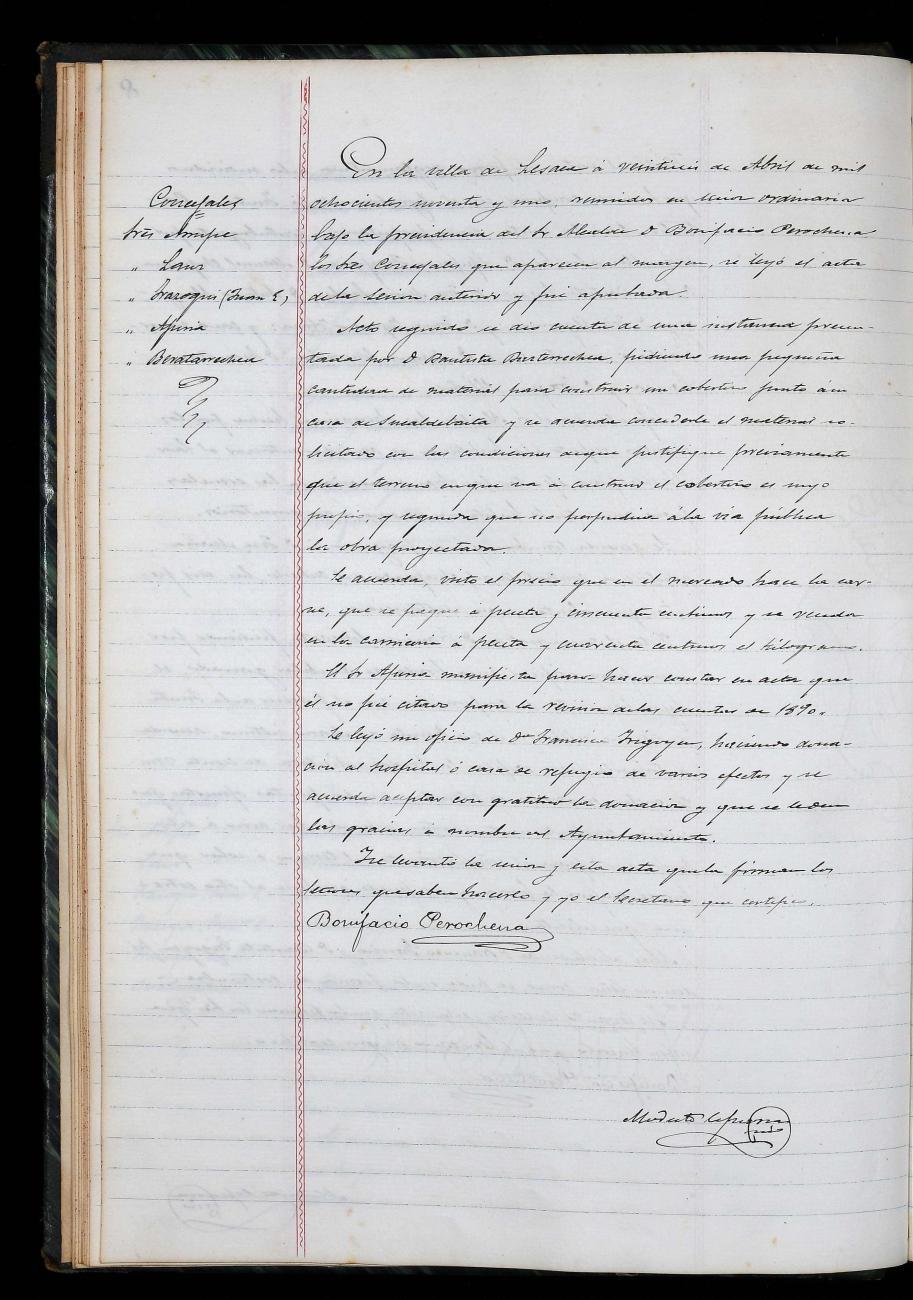 En la villa de Lesaca á veintiseis de Abril de mil
Concejales
ochocientos noventa y uno, reunidos en sesion ordinaria
Sres Arrupe
bajo la presidencia del Sr Alcalde D Bonifacio Perochena
" Sanz
los Sres Concejales que aparecen al margen, se leyó el acta
" Irazoqui (Juan E)
de la sesion anterior y fué aprobada.
" Apecia
Acto seguido se dió cuenta de una instancia presen-
" Beratarrechea
tada por D Bautista pidiendo una pequeña
cantidad de material para construir un cobertizo junto á su
casa de y se acuerda concederle el material so-
licitado con las condiciones de que justifique previamente
que el terreno en que va á construir el cobertizo es suyo
propio, y segunda que no perjudica á la via pública
la obra proyectada.
Se acuerda, visto el precio que en el mercado hace la car-
ne, que se pague á peseta y cincuenta centimos y se venda
en la carniceria á peseta y cuarenta centimos el kilogramo.
El Sr manifiesta para hacer constar en acta que
él no fué citado para la revision de las cuentas de 1890.
Se leyó un oficio de Dn Francisco Irigoyen, haciendo dona-
cion al hospital ó casa de refugio de varios efectos y se
acuerda aceptar con gratitud la donacion y que se le den
las gracias á nombre del Ayuntamiento.
Se levantó la sesion y esta acta que la firman los
señores que saben hacerlo y yo el Secretario que certifico.
Bonifacio Perochena
Modesto